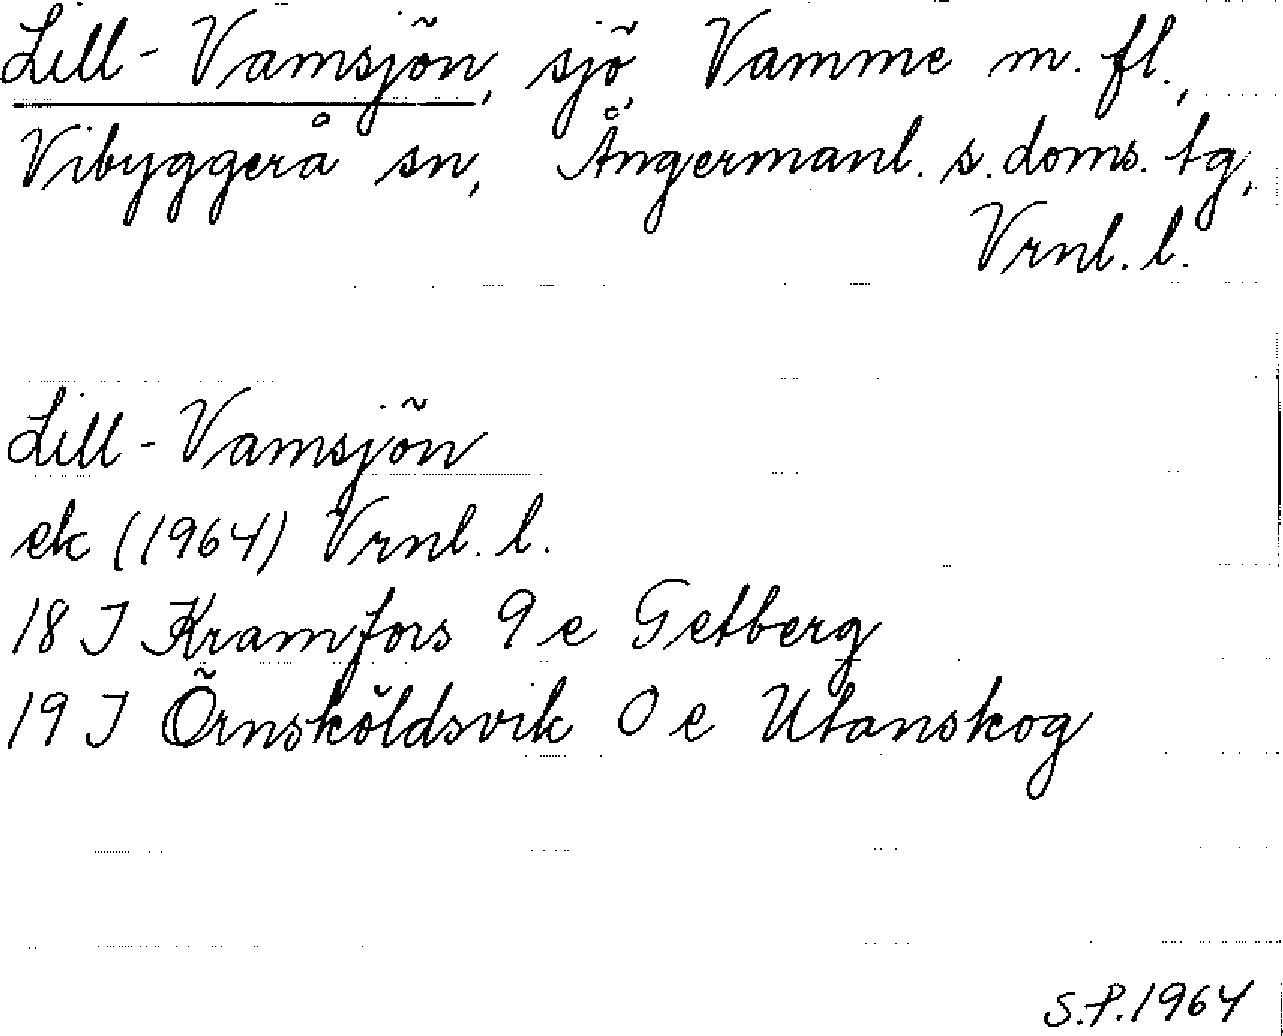 Lill-Vamsjön, sjö, Vamme m. fl.,
Vibyggerå sn, Ångermanl. s. doms. tg,
Vrnl. l.
Lill-Vamsjön
ek (1964) Vrnl. l.
18 J Kramfors 9 e Getberg
19 J Örnsköldsvik 0 e Utanskog
S.P. 1964